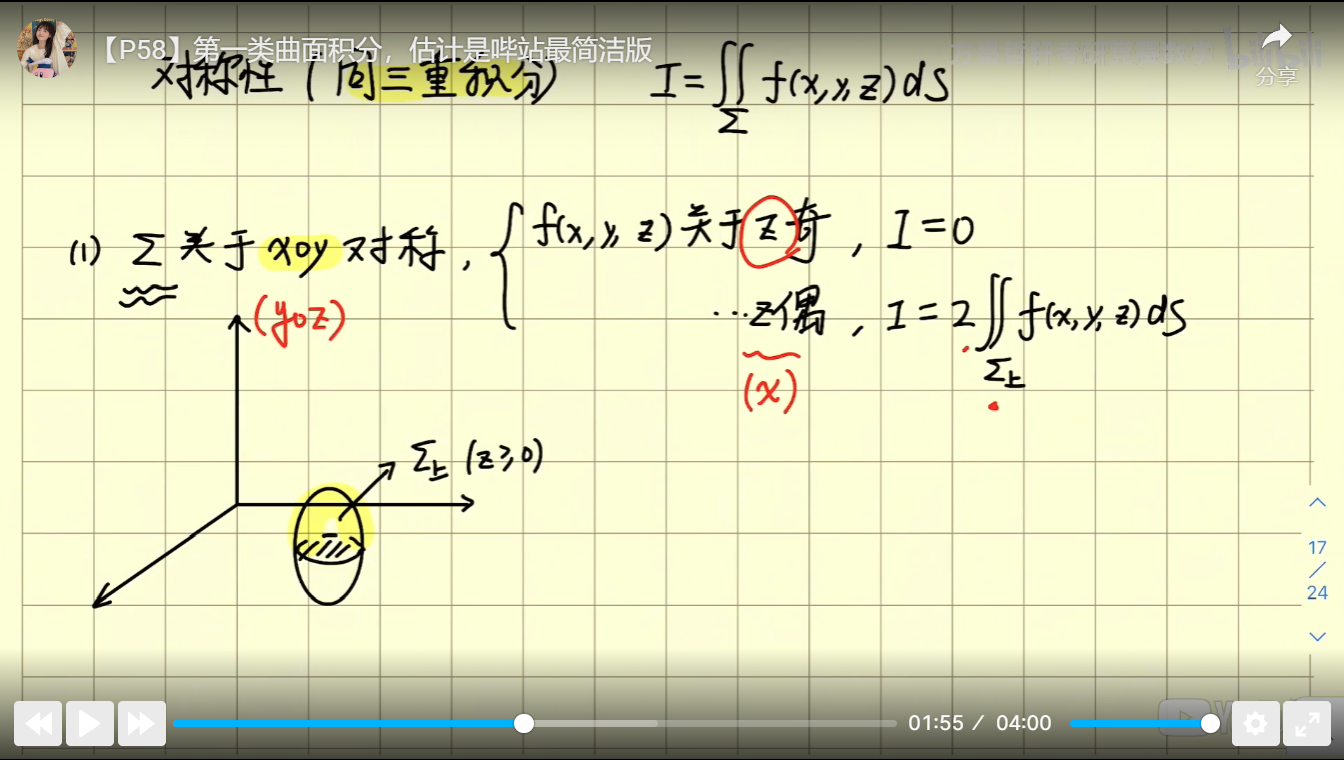 【P58】第一类曲面积分，估计是哔站最简洁版
分享
对称性（同三重积分） I=∬_Σ f(x,y,z)dS
(1) Σ关于xoy对称， { f(x,y,z)关于z奇，I=0
(yoz) …z偶，I=2∬_Σ上 f(x,y,z)dS
(x)
Σ上 (z≥0)
17
/
24
01:55 / 04:00